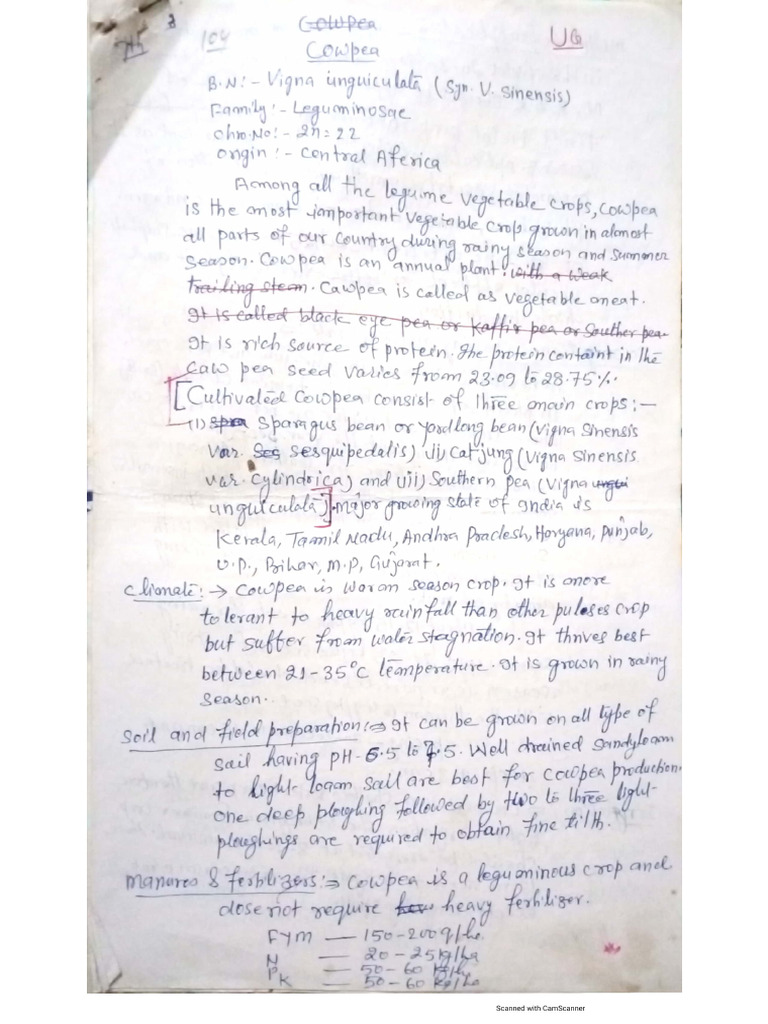 Cowpea
104
Cowpea
UG
B.N:- Vigna unguiculata (Syn. V. Sinensis)
Family:- Leguminosae
Chro.No:- 2n=22
Origin:- Central Aferica
Among all the legume vegetable crops, Cowpea
is the most important vegetable crop grown in almost
all parts of our country during rainy season and summer
season. Cowpea is an annual plant. with a weak
trailing stem. Cawpea is called as vegetable meat.
It is called black eye pea or Kaffir pea or Souther pea.
It is rich source of protein. The protein containt in the
Caw pea seed varies from 23.09 to 28.75%.
[Cultivated Cowpea consist of three main crops:-
(i) spra Sparagus bean or yordlong bean (Vigna Sinensis
var. Ses sesquipedalis) ii) Catjung (Vigna Sinensis
var. Cylindrica) and iii) Southern pea (Vigna ungui
unguiculata)]. Major growing state of India is
Kerala, Tamil Nadu, Andhra Pradesh, Horyana, Punjab,
U.P., Bihar, M.P, Gujarat.
Climate:→ Cowpea is waram season crop. It is more
tolerant to heavy rainfall than other pulses crop
but suffer from water stagnation. It thrives best
between 21-35°C temperature. It is grown in rainy
season.
Soil and field preparation:⇒ It can be grown on all type of
sail having pH- 5.5 to 7.5. Well drained Sandyloam
to light- loam sail are best for cowpea production.
One deep ploughing followed by two to three light-
ploughings are required to obtain fine tilth.
Manures & fertilizers:⇒ Cowpea is a leguminous crop and
dose not require heav heavy fertilizer.
FYM — 150-200q/ha
N — 20-25kg/ha
P — 50-60 kg/ha
K — 50-60 kg/ha
Scanned with CamScanner